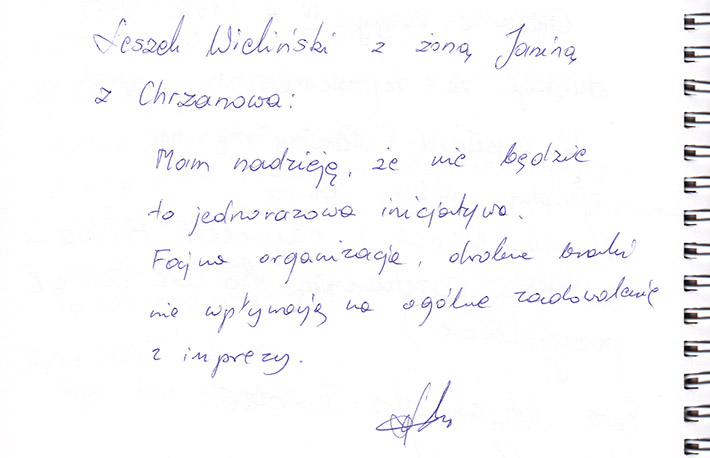 Leszek Wieliński z żoną Janiną
z Chrzanowa:
Mam nadzieję, że nie będzie
to jednorazowa inicjatywa.
Fajna organizacja, drobne braki
nie wpływają na ogólne zadowolenie
z imprezy.